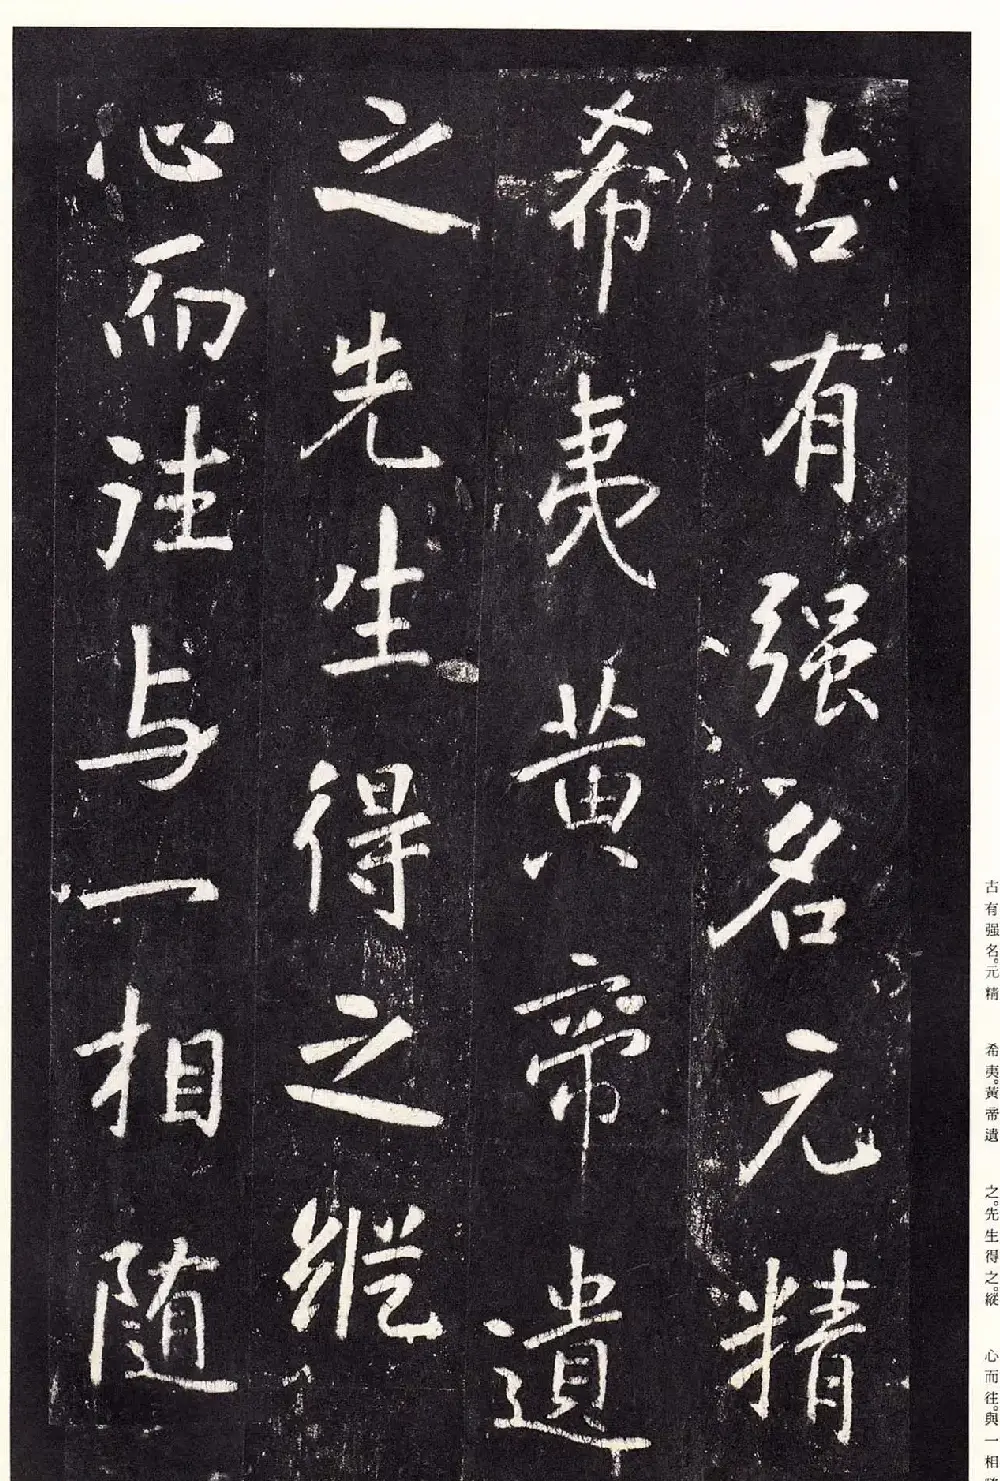 古有强名元精
希夷黄帝遺
之先生得之縱
心而往与一相随
古有强名。元精
希夷。黃帝遺
之。先生得之。縱
心而往。與一相